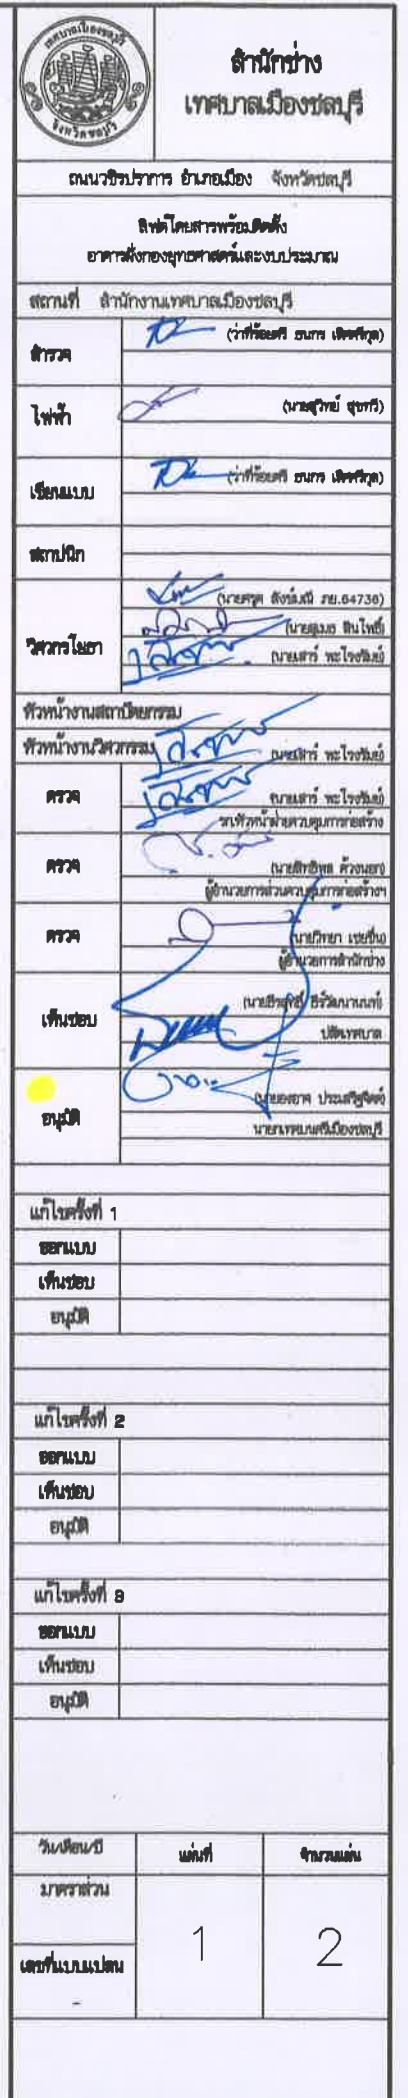 เทศบาลเมืองชลบุรี
จังหวัดชลบุรี
สำนักช่าง
เทศบาลเมืองชลบุรี
ถนนวชิรปราการ อำเภอเมือง จังหวัดชลบุรี
ลิฟต์โดยสารพร้อมติดตั้ง
อาคารฝั่งกองยุทธศาสตร์และงบประมาณ
สถานที่ สำนักงานเทศบาลเมืองชลบุรี
สำรวจ (ว่าที่ร้อยตรี ธนกร เลิศศรีกุล)
ไฟฟ้า (นายสุวิทย์ สุขทวี)
เขียนแบบ (ว่าที่ร้อยตรี ธนกร เลิศศรีกุล)
สถาปนิก
(นายศรุต ภย.64736)
วิศวกรโยธา
(นายเสาร์ พะโรงรัมย์)
หัวหน้างานสถาปัตยกรรม
หัวหน้างานวิศวกรรม (นายเสาร์ พะโรงรัมย์)
ตรวจ (นายเสาร์ พะโรงรัมย์)
รก.หัวหน้าฝ่ายควบคุมการก่อสร้าง
ตรวจ (นายสิทธิพล ด้วงนอก)
ผู้อำนวยการส่วนควบคุมการก่อสร้างฯ
ตรวจ (นายวิทยา เชยชื่น)
ผู้อำนวยการสำนักช่าง
เห็นชอบ
ปลัดเทศบาล
อนุมัติ (นายองอาจ ประเสริฐจิตต์)
นายกเทศมนตรีเมืองชลบุรี
แก้ไขครั้งที่ 1
ออกแบบ
เห็นชอบ
อนุมัติ
แก้ไขครั้งที่ 2
ออกแบบ
เห็นชอบ
อนุมัติ
แก้ไขครั้งที่ 3
ออกแบบ
เห็นชอบ
อนุมัติ
วัน/เดือน/ปี แผ่นที่ จำนวนแผ่น
มาตราส่วน
1 2
เลขที่แบบแปลน
-